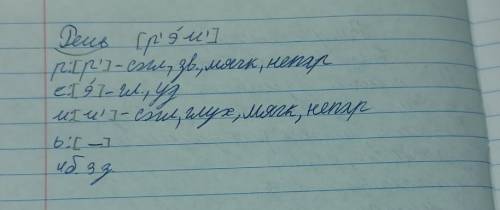 Речь [р' э́ ч']
р:[р'] - согл, зв., мягк, непар
е:[э́] - гл., уд
ч:[ч'] - согл, глух, мягк, непар
ь:[—]
4б 3з